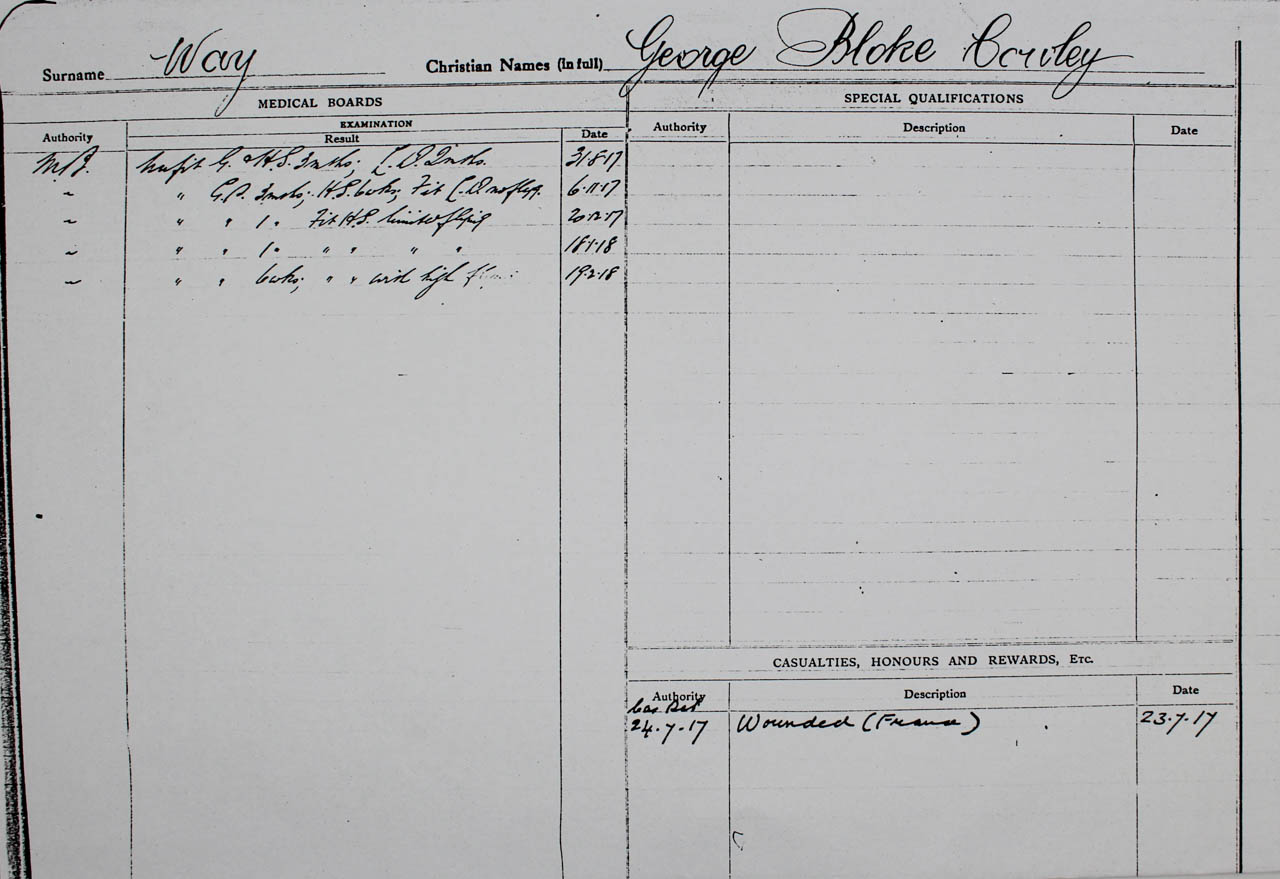 Surname Way Christian Names (In full) George Bloke Cowley
MEDICAL BOARDS
EXAMINATION
Authority Result Date
M.B. Unfit G. & H.S. 3mths; L.D. 2mths. 31.8.17
~ " G.S. 3mths; H.S. 6wks; Fit L.D. no flyg. 6.11.17
~ " " 1 " Fit H.S. limited flying 20.12.17
~ " " 1 " " " " " 18.1.18
~ " " 6wks; " " with high 19.2.18
SPECIAL QUALIFICATIONS
Authority Description Date
CASUALTIES, HONOURS AND REWARDS, ETC.
Authority Description Date
Cas Rep
24.7.17 Wounded (France) 23.7.17